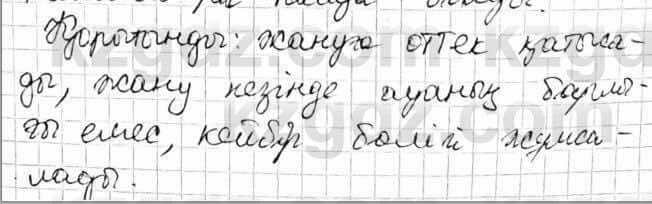 Қорытынды: жануға оттек қатыса-
ды, жану кезінде ауаның барлы-
ғы емес, кейбір бөлігі жұмса-
лады.